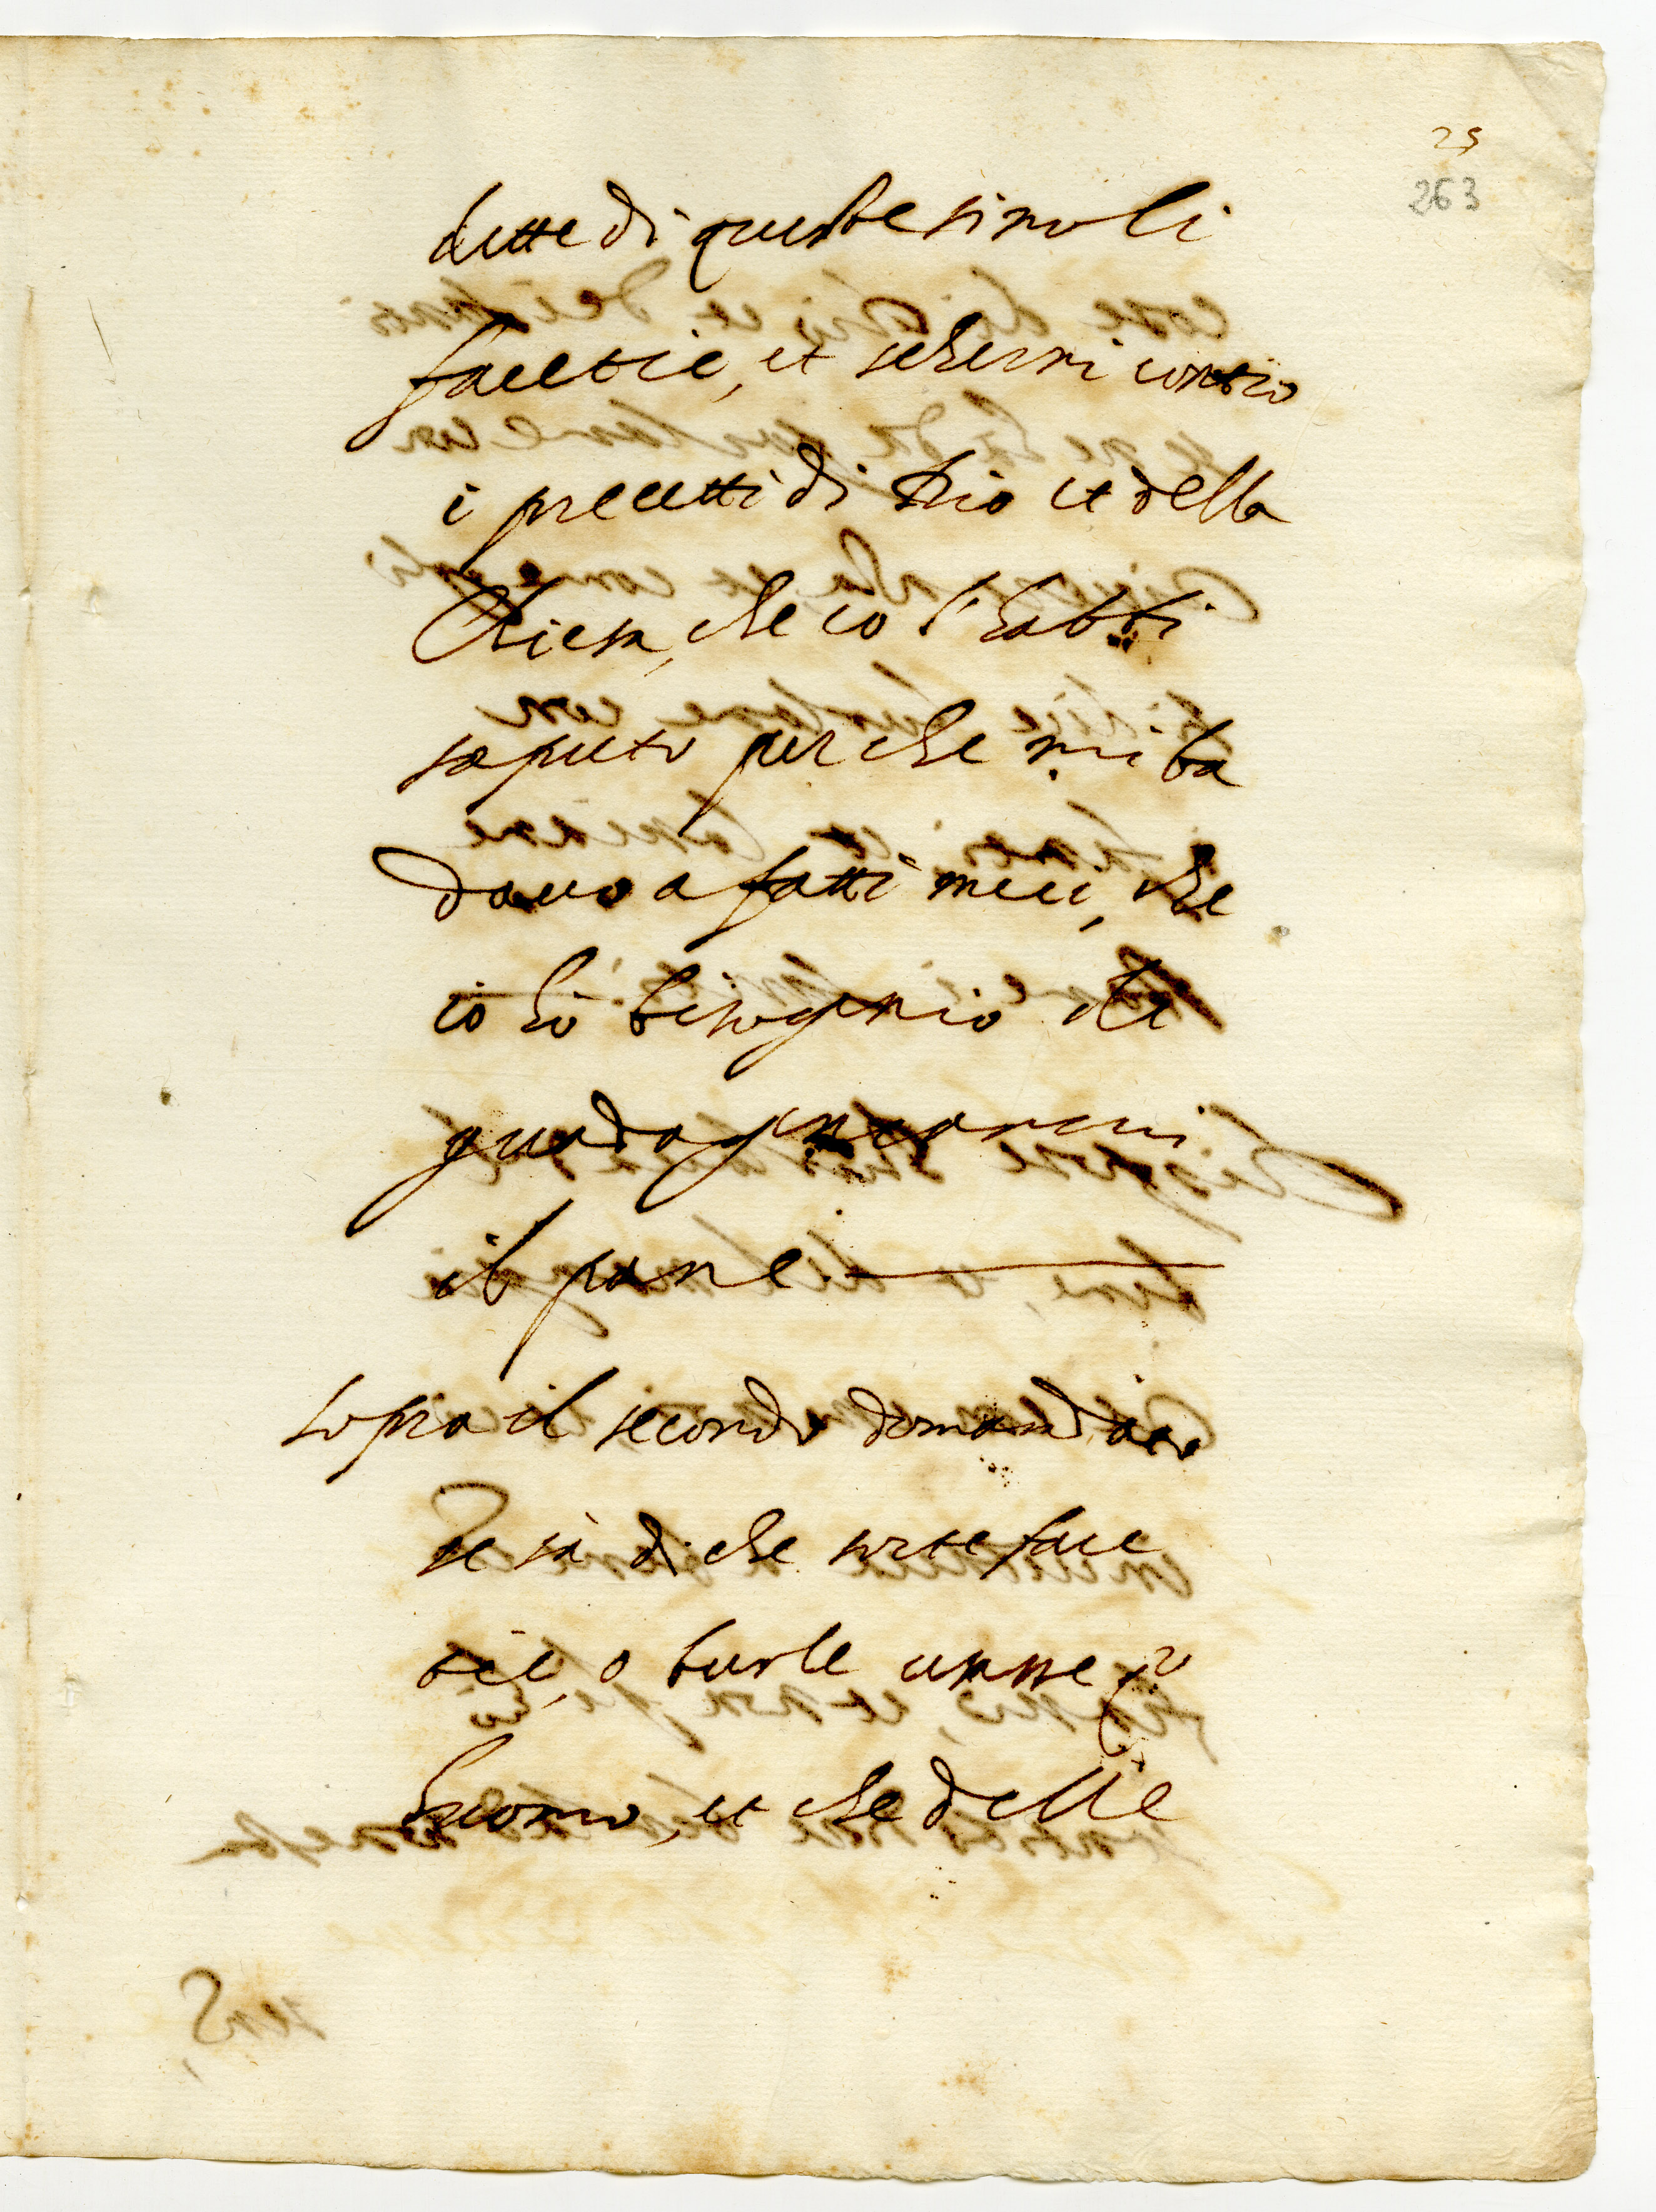 25
263
dette di queste simili
facetie, et scherni contro
i precetti di Dio et della
Chiesa, che io l'habbi
saputo perche mi ba
davo a fatti miei, che
io hò bisognio di
guadagniarmi
il pane.
sopra il secondo domandato
Se sà di che sorte face
tie, o burle
huomo, et che delle